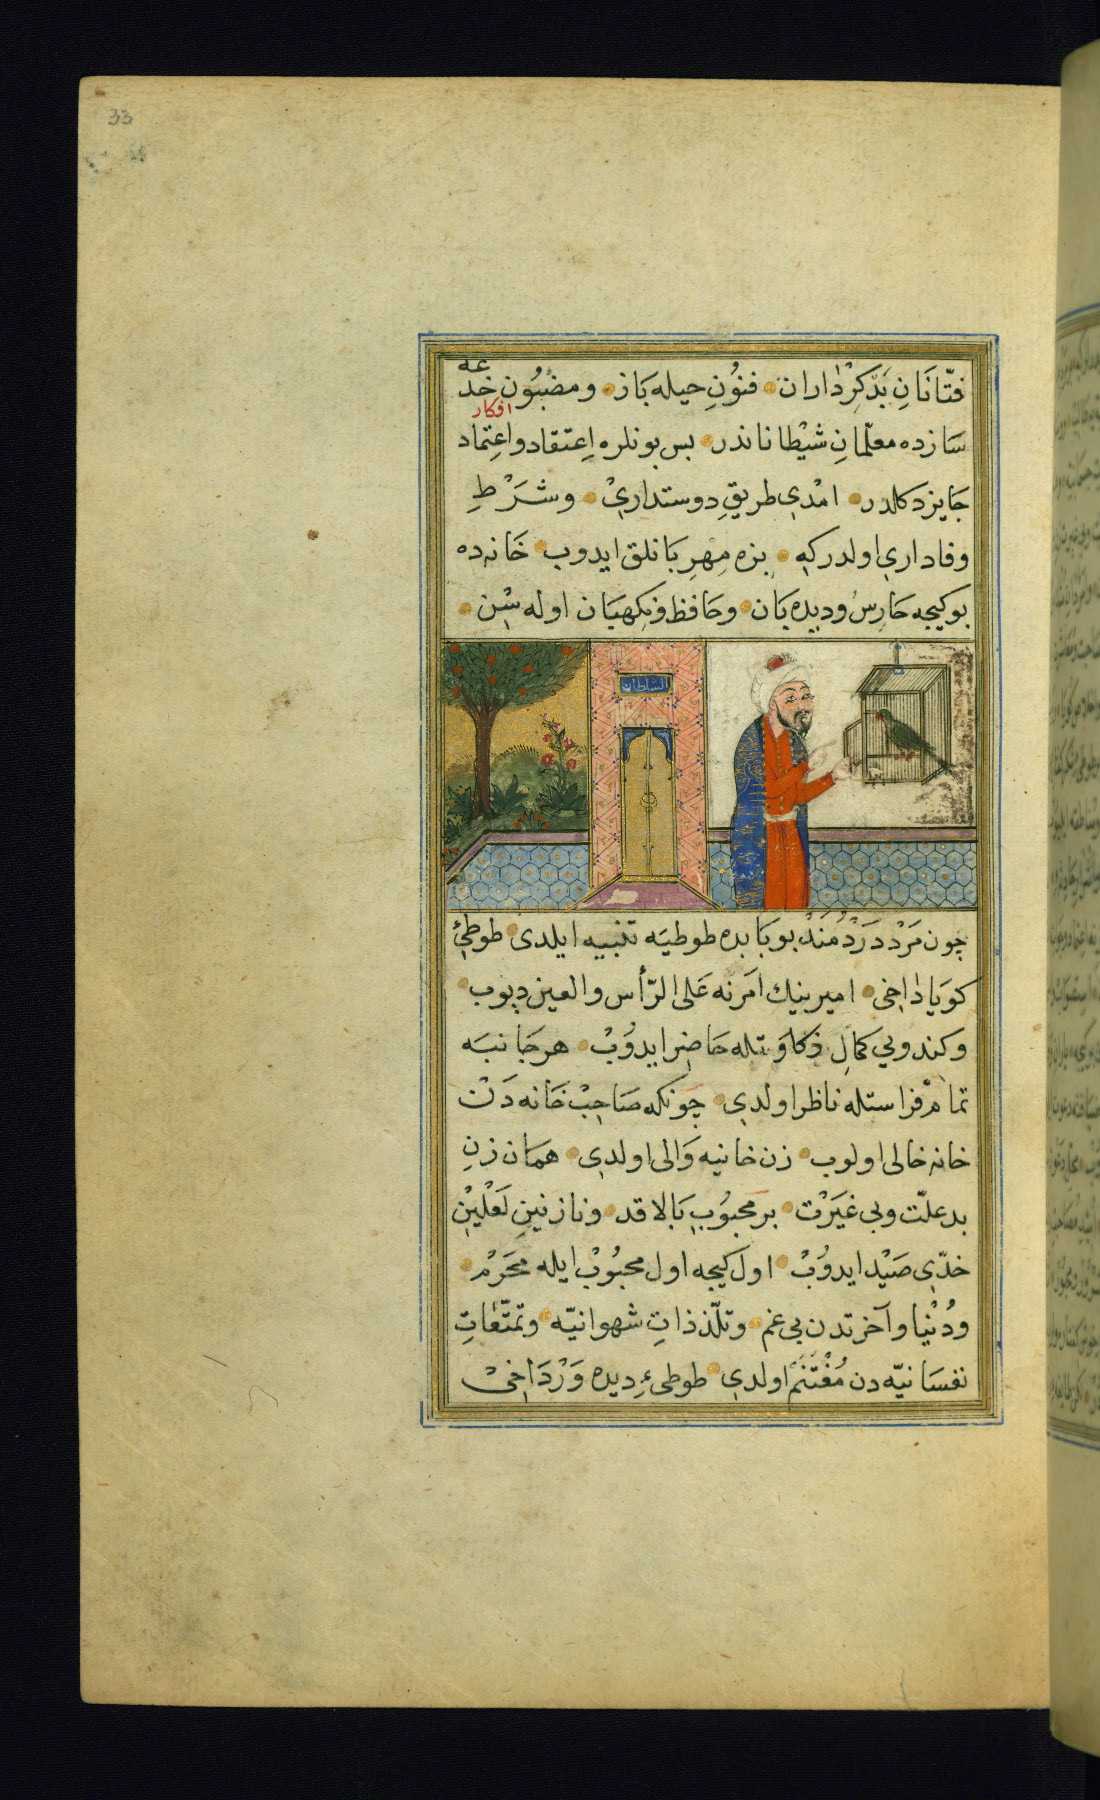 33
فتّانَانِ بَدْكِرْدَاران فنوُنِ حيله بَاز ومضبوُنِ خدعه
افكار
سَازده معلّمانِ شيْطاناندر بس بونلره اِعتقاد واعتِماد
جَايز دكلدر امْدى طريقِ دوستدارىْ وشَرْطِ
وفادارى اولدركه بزه مِهرِ بَانلق ايدوب خَانه ده
بوكيجه حَارس وديده بَان وحَافظ ونكِهبَان اوله سْن
السلطان
چون مَرْد دَرْدْمَنْد بو بَابده طوطيَه تنبيه ايلدى طوطئ
كويَا دَاخى امير بنيك امَرنه عَلى الرّأس والعين ديوب
وكندويى كمالِ ذكاوَتله حَاضِر ايدوُبْ هر جَانبَه
تمامْ فراستله ناظر اولدى چونكه صَاحِبْ خَانه دَنْ
خانه خالى اولوب زن خانيه وَالى اولدى همَان زنِ
بدعلّت وبى غيَرْت بر محبوُبِ بَالا قد ونازنينِ لَعْلِيْنْ
خدّى صَيْد ايدوُبْ اول كيجه اول محبُوبْ ايله محَرَمْ
ودُنْيا وآخرتدن بى غم وتلّذذاتِ شهوانيّه وتمتّعَاتِ
نفسَانيّه دن مُغْتَنَم اولدى طوطىءِ ديده وَرْ دَاخىْ